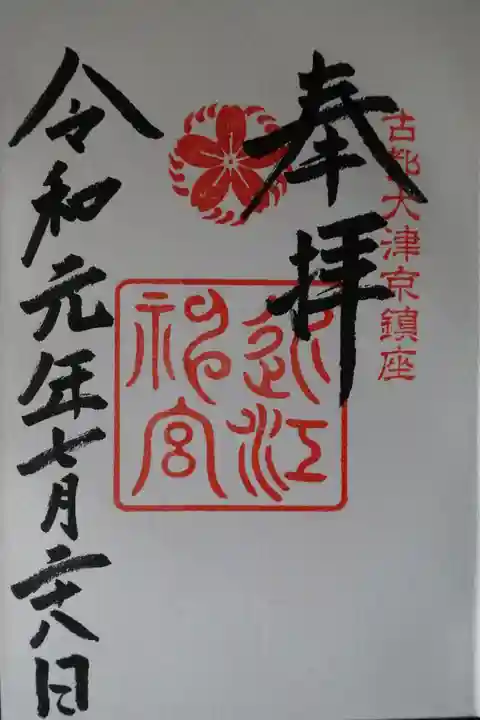 古都大津京鎮座
奉拝
近江神宮
令和元年七月二十八日